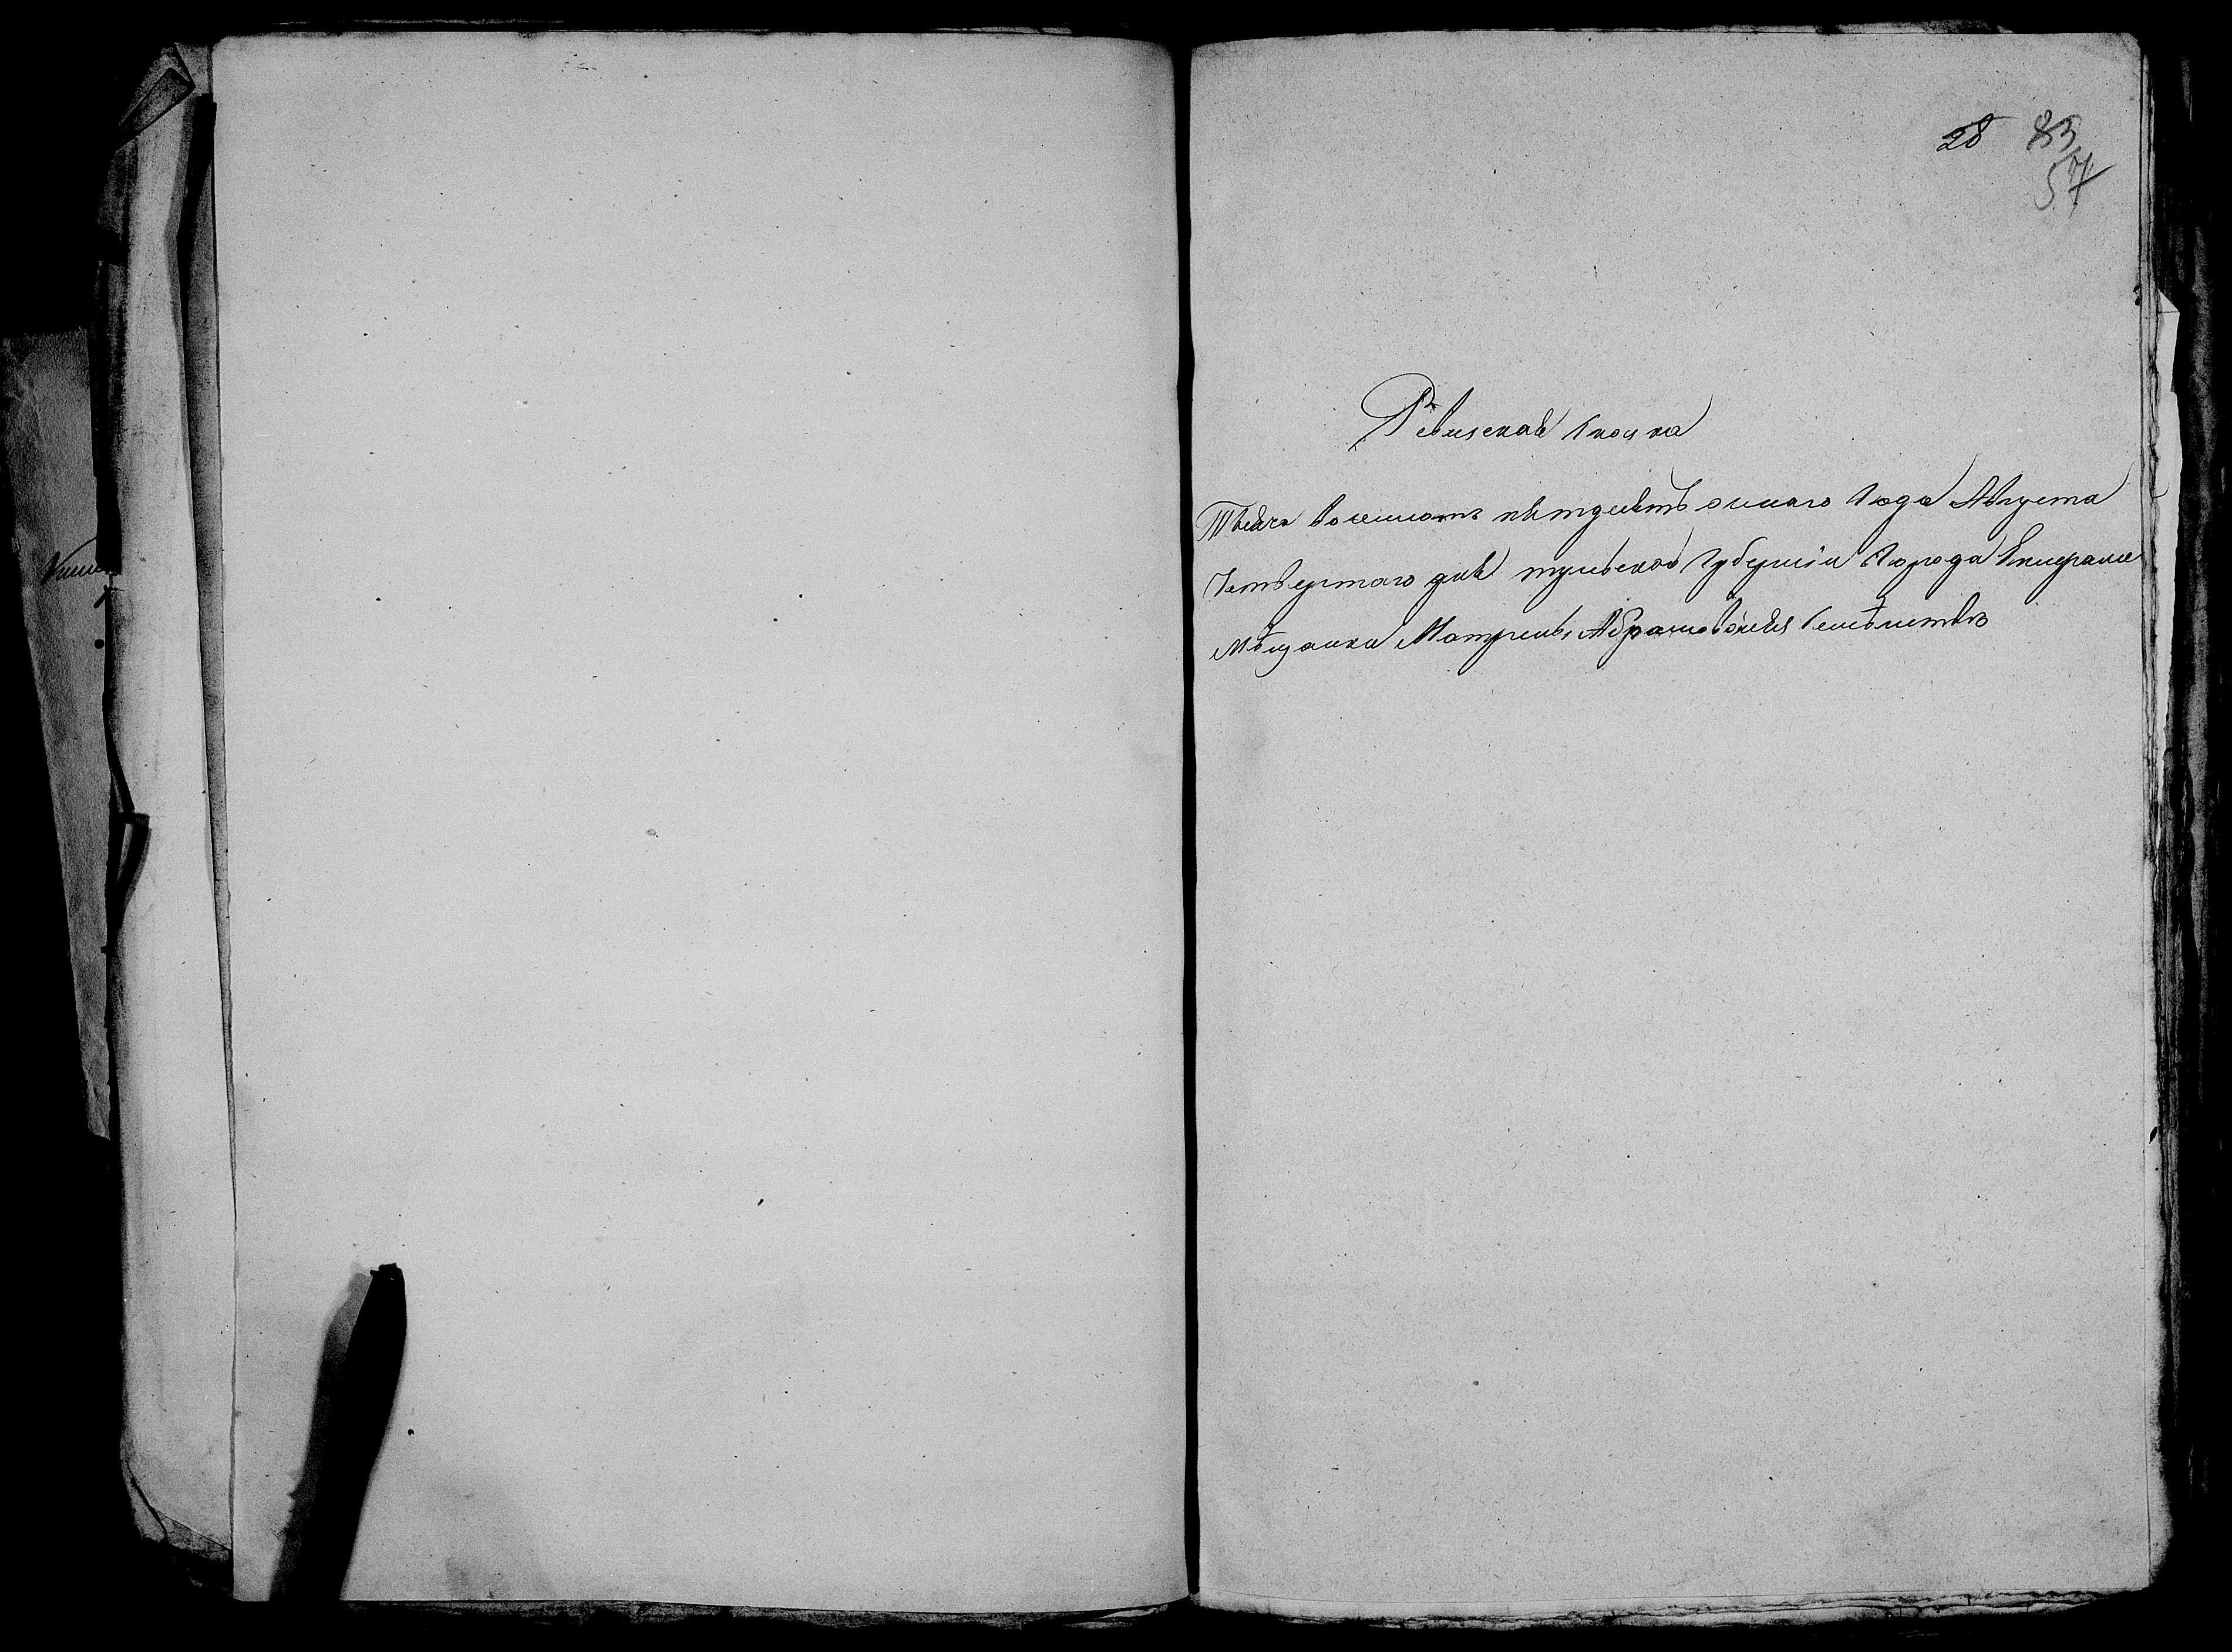 28 83
57
Ревиская Скаска
Тысеча восемсотъ пятдесятъ осмаго Года Августа
Четвертаго дня тульской Губерніи Города Епифани
мѣщанки Матрены Абрамовой